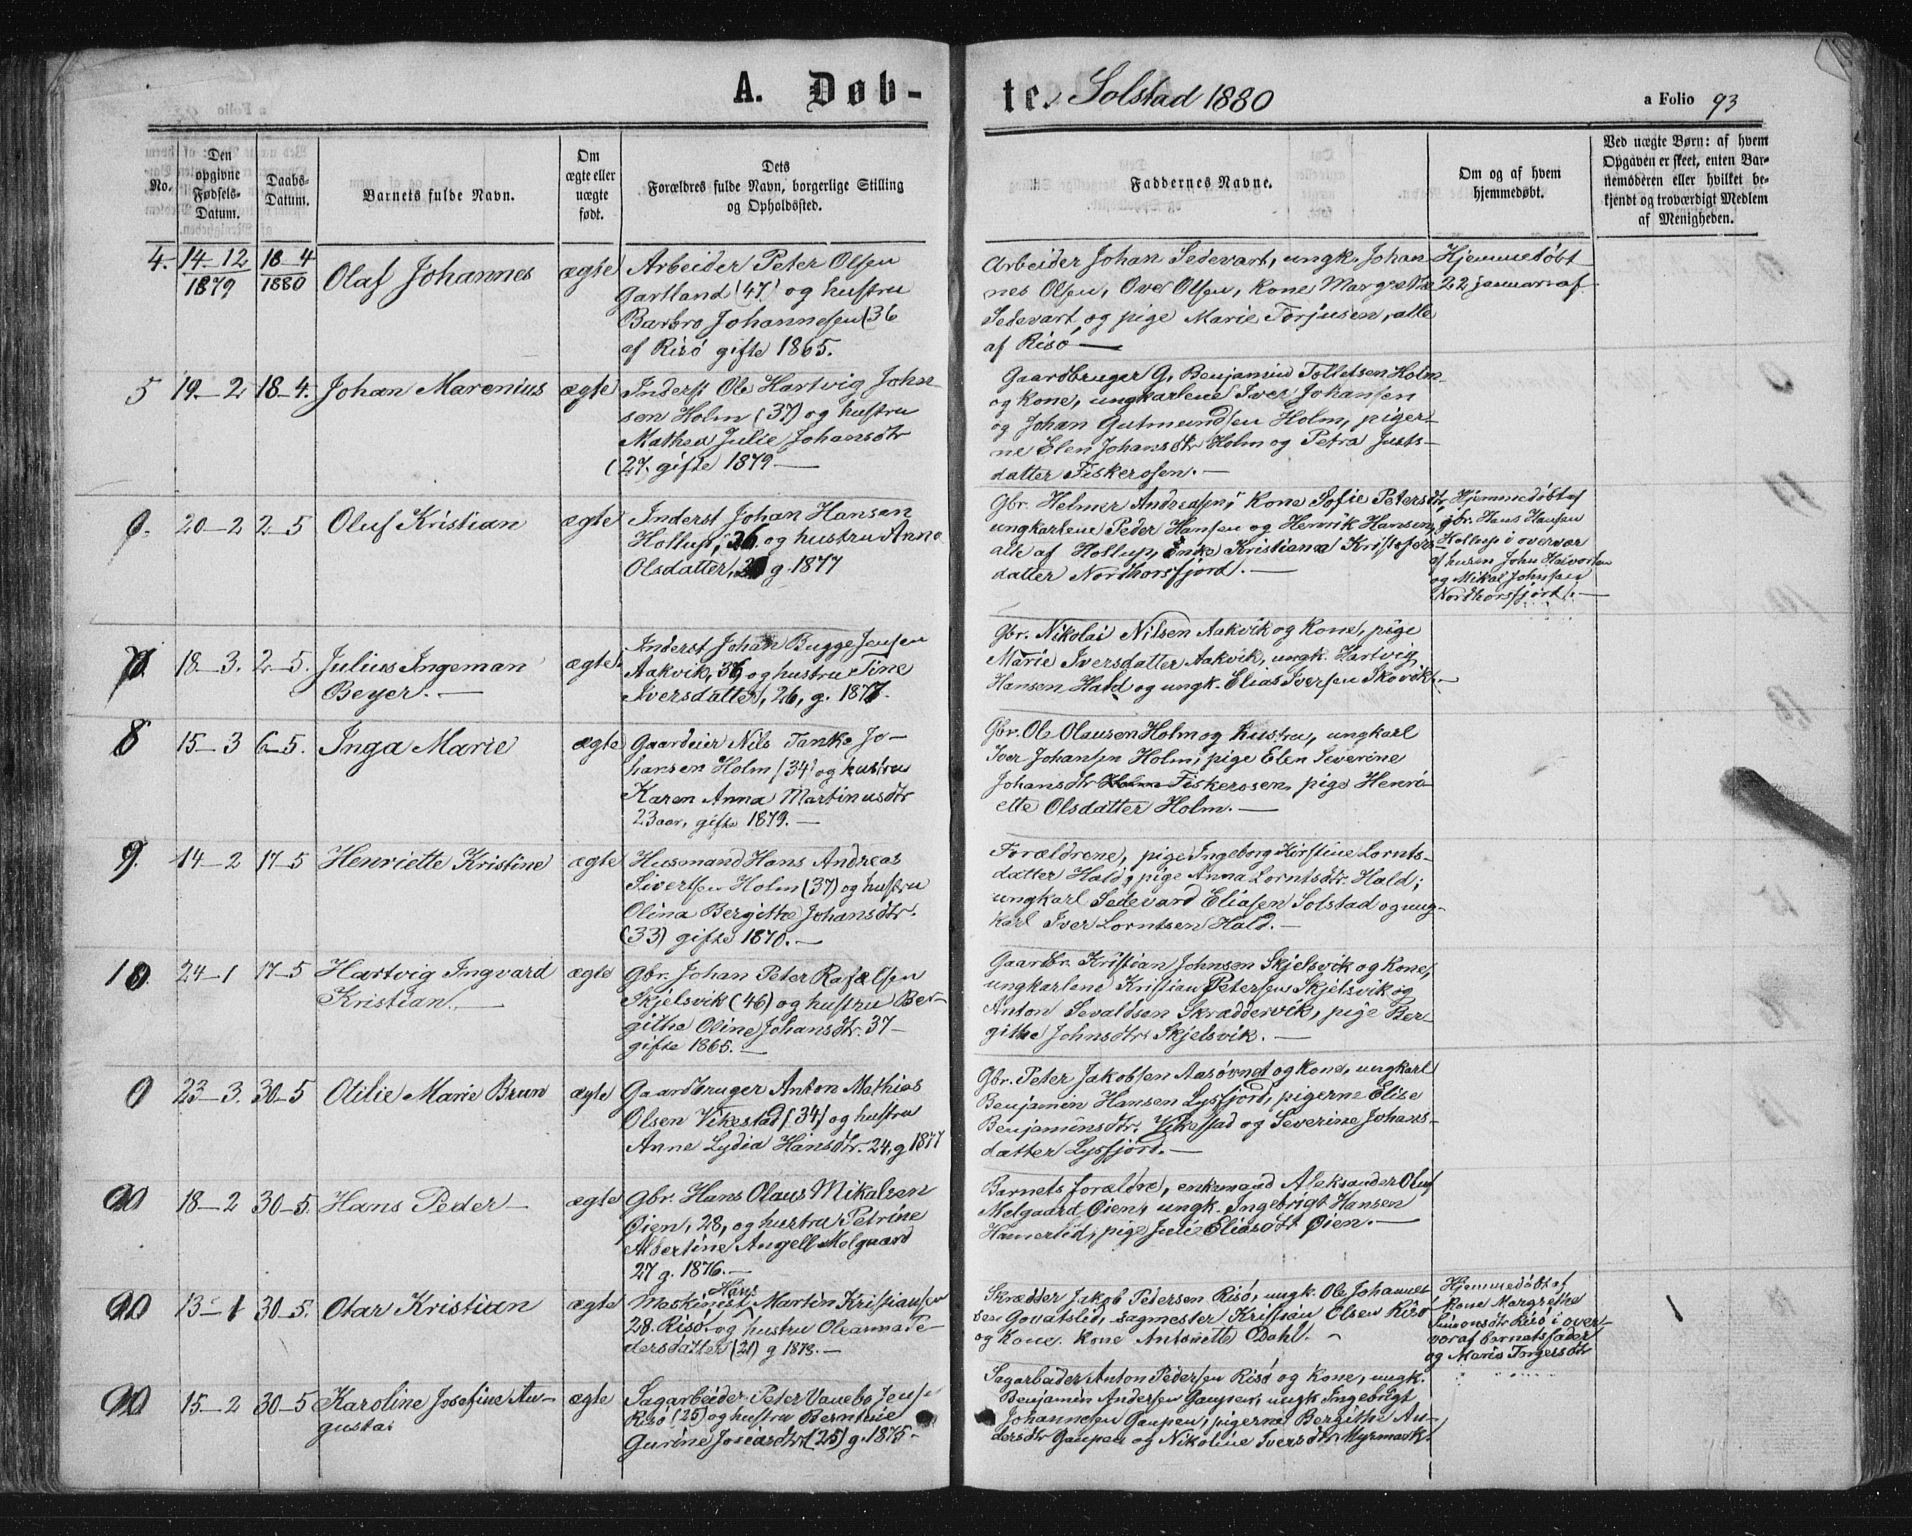 A. Døb-
te. Solstad 1880
a Folio 93
No.
Den opgivne Fødsels-Datum.
Daabs-Datum.
Barnets fulde Navn.
Om ægte eller uægte født.
Dets Forældres fulde Navn, borgerlige Stilling og Opholdssted.
Faddernes Navne.
Om og af hvem hjemmedøbt.
Ved uægte Børn: af hvem Opgaven er skeet, enten Barnemoderen eller hvilket bekjendt og troværdigt Medlem af Menigheden.
4. 14-12 1879 18-4 1880 Olaf Johannes ægte
Arbeider Peter Olsen
Gartland (47) og hustru
Barbro Johannesen (36
af Risø gifte 1865.
Arbeider Johan Sedevart, ungk. Johan
nes Olsen, Ove Olsen, kone Margrethe
Sedevart og pige Marie Torjusen, alle
af Risø
Hjemmedøbt
22 januar af
5 19-2 18-4. Johan Marenius ægte
Inderst Ole Hartvig John
sen Holm (37) og hustru
Mathea Julie Johansdtr
(27. gifte 1879.
Gaardbruger G. Benjamin Tolletsen Holm
og kone, ungkarlene Iver Johansen
og Johan Gutmundsen Holm, piger-
ne Elen Johansdtr Holm og Petra Justs-
datter Fiskerosen.
20-2 2-5 Oluf Kristian ægte
Inderst Johan Hansen
Hollup, 26 og hustru Anna
Olsdatter, g. 1877
Gbr. Helmer Andreasen, kone Sofie Petersdtr,
ungkarlene Peder Hansen og Henrik Hansen,
alle af Hollup, Enke Kristiana Kristofers-
datter Nordhorsfjord.
Hjemmedøbt af
gbr. Hans Hansen
Hollup i overvær
af husen John Halvorsen
og Mikal Johnsen
Nordhorsfjord.
18-3. 2-5. Julius Ingeman
Beyer. ægte
Inderst Johan Bugge Jensen
Aakvik, 36, og hustru Tine
Iversdatter, 26, g. 1877.
Gbr. Nikolai Nilsen Aakvik og kone, pige
Marie Iversdatter Aakvik, ungk. Hartvig
Hansen Hald og ungk. Elias Iversen Skovik.
8 15-3 6-5. Inga Marie ægte
Gaardeier Nils Tanke Jo-
hansen Holm (34) og hustru
Karen Anna Martinusdtr
23 aar, gifte 1879.
Gbr. Ole Olausen Holm og hustru, ungkarl
Iver Johansen Holm, pige Elen Severine
Johansdtr Holm Fiskerosen, pige Henri-
ette Olsdatter Holm.
9. 14-2 17-5 Henriette Kristine ægte
Husmand Hans Andreas
Sivertsen Holm (37) og hustru
Olina Bergithe Johansdtr.
(33) gifte 1870.
Forældrene, pige Ingeborg Kirstine Lornts-
datter Hald, pige Anna Lorntsdtr. Hald;
ungkarl Sedevard Eliasen Solstad og ung-
karl Iver Lorntsen Hald.
10. 24-1 17-5 Hartvig Ingvard
Kristian. ægte
Gbr. Johan Peter Rafælsen
Skjelsvik (46) og hustru Ber-
githe Oline Johansdtr. 37
gifte 1865.
Gaardbr. Kristian Johnsen Skjelsvik og kone,
ungkarlene Kristian Petersen Skjelsvik og
Anton Sevaldsen Skræddervik, pige Ber-
githe Johnsdtr. Skjelsvik.
23-3. 30-5 Otilie Marie Brun ægte
Gaardbruger Anton Mathias
Olsen Vikestad (34) og hustru
Anne Lydia Hansdtr. 24, g 1877
Gbr. Peter Jakobsen Aasøvngt og kone, ungkarl
Benjamin Hansen Lysfjord, pigerne Elise
Benjaminsdtr. Vikestad og Severine Johans-
datter Lysfjord.
18-2 30-5. Hans Peder ægte
Gbr. Hans Olaus Mikalsen
Øien, 28, og hustru Petrine
Albertine Angell Melgaard
27 g. 1876.
Barnets forældre, enkemand Aleksander Oluf
Melgaard Øien, ungk. Ingebrigt Hansen
Hamerlid, pige Juli Eliasdtr Øien.
13-1 30-5. Otar Kristian ægte
Maskinist Hans Martin Kristiansen
28. Risø og hustru Oleanna Pe-
dersdatter (21) g 1878.
Skrædder Jakob Pedersen Risø, ungk. Ole Johannes
sen , sagmester Kristian Olsen Risø
og kone. kone Antonette Dahl.
Hjemmedøbt af
Kone Margrethe
Simonsdtr Risø i over-
vær af barnets fader
og Maria Ingersdtr
15-2 30-5 Karoline Josefine Au-
gusta. ægte
Sagarbeider Peter Vanebo Jens
Risø (25) og hustru Berntine
Gurine Josiasdtr (25) g. 1875.
Sagarbeider Anton Pedersen Risø og kone, ungk.
Benjamin Andersen Gaupen, ungk Ingebrigt
Johannesen Gaupen, pigerne Bergithe An-
dersdtr Gaupen og Nikoline Iversdtr Myrmark.